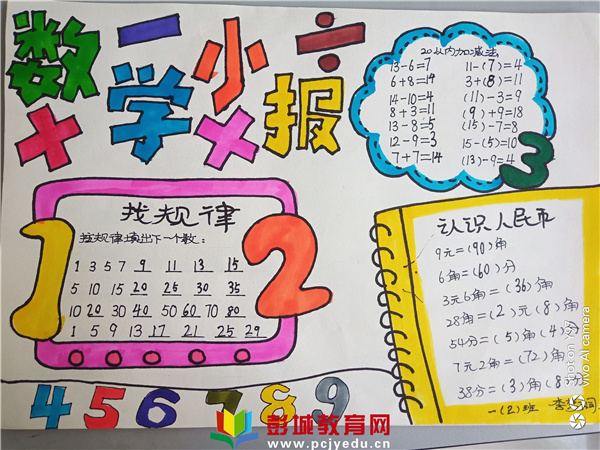 数学小报
20以内加减法
13-6=7 11-(7)=4
6+8=14 3+(8)=11
14-10=4 (11)-3=9
8+3=11 (9)+9=18
13-8=5 (15)-7=8
12-9=3 15-(5)=10
7+7=14 (13)-9=4
3
1
2
找规律
按规律填出下一个数:
1 3 5 7 9 11 13 15
5 10 15 20 25 30 35
10 20 30 40 50 60 70 80
1 5 9 13 17 21 25 29
认识人民币
9元=(90)角
6角=(60)分
3元6角=(36)角
28角=(2)元(8)角
54分=(5)角(4)分
7元2角=(72)角
38分=(3)角(8)分
一(2)班 李
4 5 6 7 8 9
彭城教育网
www.pcjyedu.cn
vivo AI camera